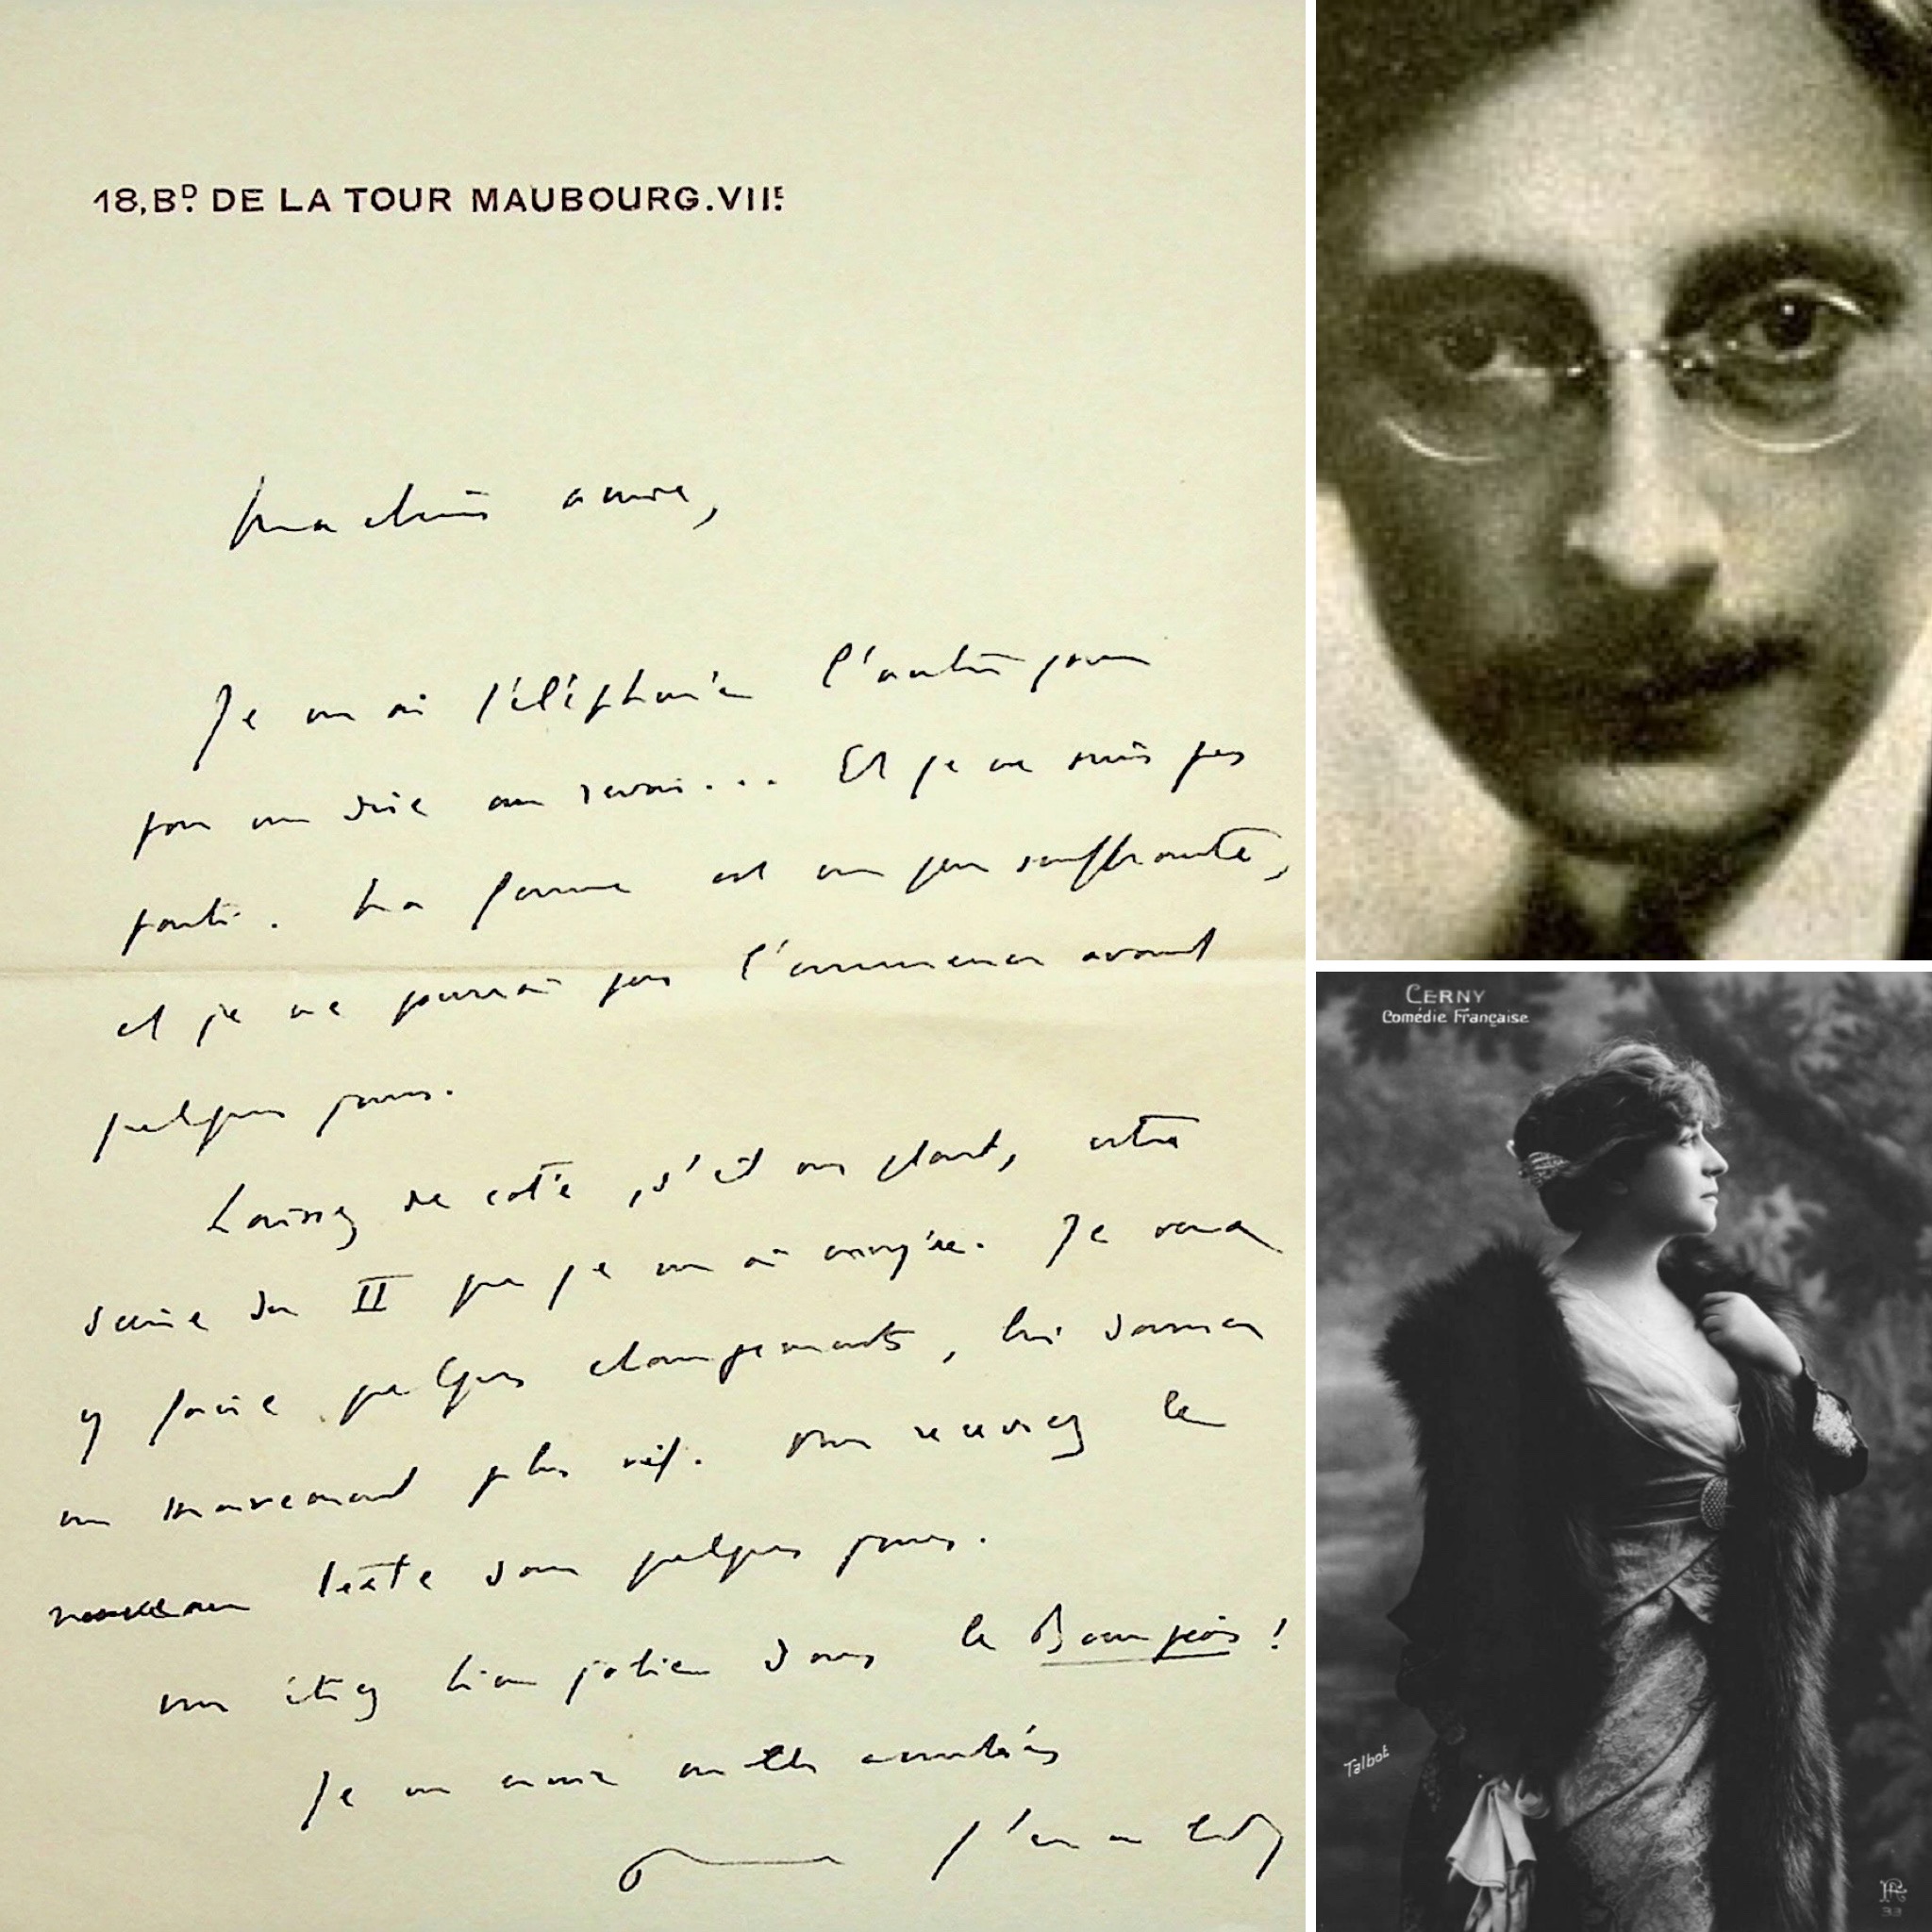 18, BD. DE LA TOUR MAUBOURG. VIIE.
Ma chère amie,
Je vous ai téléphoné l'autre jour
pour vous dire au revoir... Et je ne suis pas
parti. Ma femme est un peu souffrante,
et je ne pourrai pas l'emmener avant
quelques jours.
Laissez de coté, s'il vous plait, cette
scène du II que je vous ai envoyée. Je veux
y faire quelques changements, lui donner
un mouvement plus vif. Vous recevrez le
nouveau texte dans quelques jours.
Vous étiez bien jolie dans le Bourgeois !
Je vous envoie mille amitiés
CERNY
Comédie Française
Talbot
33